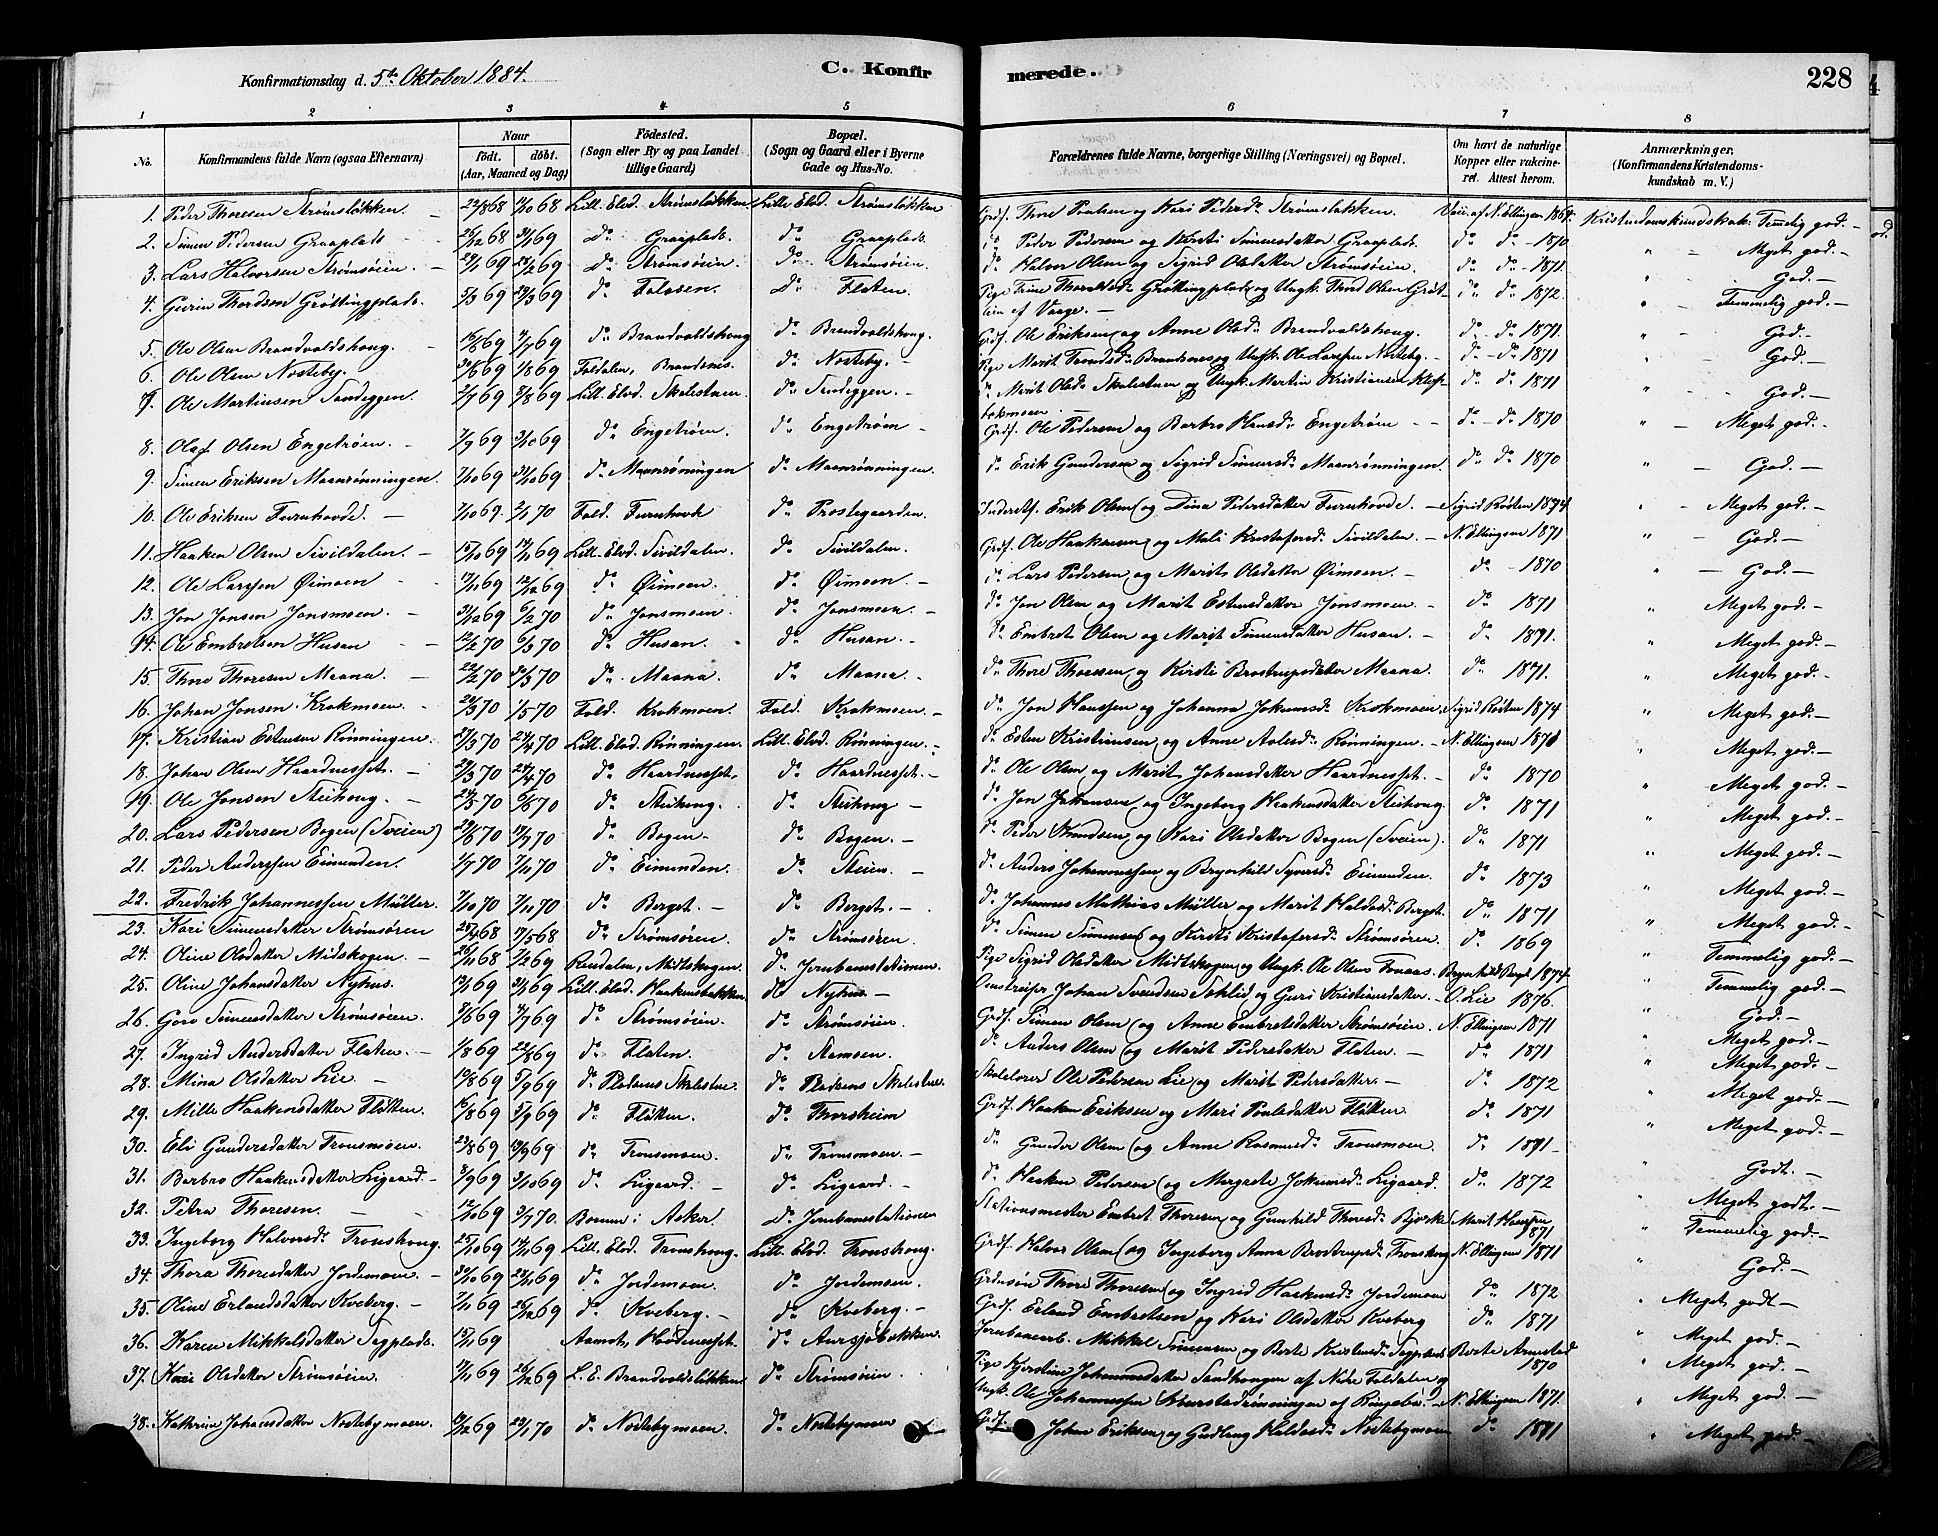 Konfirmationsdag d. 5te Oktober 1884.
C. Konfirmerede.
228
1 2 3 4 5 6 7 8
No.
Konfirmandens fulde Navn (ogsaa Efternavn)
Naar
födt. döbt.
(Aar, Maaned og Dag)
Födested.
(Sogn eller By og paa Landet
tillige Gaard)
Bopæl.
(Sogn og Gaard eller i Byerne
Gade og Hus-No.
Forældrenes fulde Navne, borgerlige Stilling (Næringsvei) og Bopæl.
Om havt de naturlige
Kopper eller vakcineret. Attest herom.
Anmærkninger,
(Konfirmandens Kristendomskundskab m. V.)
1. Peder Thoresen Strømsløkken. Lill. Elvd. Strømsløkken. Lille Elvd. Strømsløkken Grdf. Thore Paulsen og Kari Pedersdr. Strømsløkken. Vacc. af N. Ellingsen 1869. Kristendomskundskab: Temmelig god.
2. Simen Pedersen Graaplads 26/12 68 31/1 69 do Graaplads. do Graaplads. do Peder Pedersen og Kirsti Simensdatter Graaplads. do do 1870 " Meget god.
3. Lars Halvorsen Strømsøien. 29/1 69 28/2 69 do Strømsøien. do Strømsøien. do Halvor Olsen og Sigrid Olsdatter Strømsøien. do do 1871. " God.
4. Thordsen Grøttingplads. 5/3 69 29/3 69 do Flaten. Pige Thoraldsdr. Grøttingplads og Ungk. Thord Olsen af Vaage. do do 1872. " Temmelig god.
5. Ole Olsen Brandvoldshoug. 16/6 69 do Brandvoldshoug do Brandvoldshoug. Grdf. Ole Eriksen og Anne Olsdr. Brandvoldshoug. do do 1871. " God.
6. Ole Olsen Nosteby. 30/6 69 1/8 69 Foldalen, Brandsnes. do Nosteby. Pige Marit Trondsdr. Brandsnes og Ungk. Ole Larssen Nosteby. do do 1871 " God.
7. Ole Martinsen Sandeggen. 2/7 69 8/8 69 Lill. Elvd. Skolestuen. do Sandeggen. do Marit Olsdr. Skolestuen og Ungk. Martin Kristiansen do do 1871 " God.
8. Olaf Olsen Engetrøen. 7/9 69 3/10 69 do Engetrøen. do Engetrøen Grdf. Ole Pedersen og Barbro Hansdr. Engetrøen do do 1870 " Meget god.
9. Simen Eriksen Maanrønningen. 7/10 69 31/10 69 do Maanrønningen do Maanrønningen. do Erik Gundersen og Sigrid Simensdr. Maanrønningen. do do 1870 " God.
10. Ole Eriksen Furuhovde. 7/10 69. 2/1 70 Fold. Furuhovde do Prestegaarden. Inderstf. Erik Olsen og Dina Pedersdatter Furuhovde. Sigrid Røsten 1874 " Meget god.
11. Haaken Olsen Sivildalen. 15/10 69 14/11 69 Lill. Elvd. Sivildalen. do Sivildalen. Grdf. Ole Haakensen og Mali Kristofersdr. Sivildalen. N. Ellingsen 1871 " God.
12. Ole Larssen Øimoen 17/11 69 12/12 69 do Øimoen. do Øimoen. do Lars Pedersen og Marit Olsdatter Øimoen. do 1870 " God.
13. Jon Jonsen Jonsmoen. 31/12 69 6/2 70 do Jonsmoen. do Jonsmoen. do Jon Olsen og Marit Estensdatter Jonsmoen. do 1871 " Meget god.
14. Ole Embretsen Husan 12/2 70 6/3 70 do Husan. do Husan. do Embret Olsen og Marit Simensdatter Husan. do 1871. " Meget god.
15. Thore Thoresen Maana. 22/2 70 do Maana. do Maana. do Thore Thoresen og Kirsti Brostrupsdatter Maana. do 1871. " Meget god.
16. Johan Jonsen Krokmoen. 20/3 70 1/5 70 Fold. Krokmoen. Fold. Krokmoen. do Jon Hanssen og Johanna Jokumsdr. Krokmoen. Sigrid Røsten 1874 " Meget god.
17. Kristian Estensen Rønningen. 27/3 70 24/4 70 Lill. Elvd. Rønningen. Lill. Elvd. Rønningen. do Esten Kristiansen og Anne Rønningen. N. Ellingsen 1871 " Meget god.
18. Johan Olsen Haardnesset. 29/3 70 24/4 70 do Haardnesset. do Haardnesset. do Ole Olsen og Marit Johansdatter Haardnesset. do 1870 " Meget god.
19. Ole Jonsen Steihoug. do Steihoug. do Steihoug do Jon Johansen og Ingeborg Haakensdatter Steihoug do 1871 " Meget god.
20. Lars Pedersen Bogen (Sveien) do Bogen. do Bogen. do Peder Knudsen og Kari Olsdatter Bogen (Sveien). do 1871 " Meget god.
21. Peder Anderssen Eimunden. 1/7 70 7/11 70 do Eimunden. do Steien. do Anders Johannessen og Brynhild Eimunden. do 1873 " Meget god.
22. Fredrik Johannessen Müller. 7/10 70 7/11 70 do Berget. do Berget. do Johannes Mathias Müller og Marit Haldosdr. Berget. do 1871 " Meget god.
23. Kari Simensdatter Strømsøren 25/4 68 17/5 68 do Strømsøren. do Strømsøren. do Simen Simensen og Kirsti Kristofersdr. Strømsøren. do 1869 " Meget god.
24. Oline Olsdatter Midskogen. 26/11 68 7/2 69 Rendalen, Midtskogen. do Jernbanestationen. Pige Sigrid Olsdatter Midtskogen og Ungk. Ole Olsen Tronaas. Brynhild Berget 1874. " Temmelig god.
25. Oline Johansdatter Nyhus. Lill. Elvd. Haakensløkken. do Nyhus Johan Svendsen og Guri Kristiansdatter. O. Lie 1876. " Temmelig god.
26. Goro Simensdatter Strømsøien. 8/6 69 4/7 69 do Strømsøien. do Strømsøien. Grdf. Simen Olsen og Anne Embretsdatter Strømsøien. N. Ellingsen 1871 " God.
27. Ingrid Andersdatter Flaten. 1/8 69 22/8 69 do Flaten. do Stamsen. do Anders Olsen og Marit Pedersdatter Flaten. do 1871 " Meget god.
28. Mina Olsdatter Lie. 10/8 69 5/9 69 do Pladsens Skolestue. do Pladsens Skolestue. Skolelærer Ole Pedersen Lie og Marit Pedersdatter. do 1872 " Meget god.
29. Mille Haakensdatter Fløtten. 16/8 69 5/9 69 do Fløtten. do Thorsheim Grdf. Haaken Eriksen og Mari Paulsdatter Fløtten. do 1871 " Meget god.
30. Eli Gundersdatter Tronsmoen. 23/8 69 19/9 69 do Tronsmoen. do Tronsmoen. do Gunder Olsen og Anne Rasmusdr. Tronsmoen. do 1871 " Meget god.
31. Barbro Haakensdatter Ligaard. 8/9 69 3/10 69 do Ligaard. do Ligaard. do Haaken Pedersen og Margrete Jokumsdr. Ligaard. do 1872 " Godt.
32. Petra Thoresen. 12/10 69 3/7 70. i Asker. do Jernbanestationen Stationsmester Embret Thoresen og Gunhild Thoresdr. Bjerke Marit Hanssen 1871 " Meget godt.
33. Ingeborg Halvorsdr. Tronshoug. 25/10 69 14/11 69 Lill. Elvd. Tronshoug. Lill. Elvd. Tronshoug. Grdf. Halvor Olsen og Ingeborg Anna Brostrupsdr. Tronshoug N. Ellingsen 1871 " Temmelig god.
34. Thora Thoresdatter Jordemoen. 30/10 69 28/11 69 do Jordemoen. do Jordemoen. Thore Thoresen og Ingrid Haakensdr. Jordemoen do 1872 " God.
35. Oline Erlandsdatter Kveberg. 7/11 69 26/12 69 do Kveberg. do Kveberg. Grdf. Erland Embretsen og Kari Olsdatter Kveberg do 1871 " Meget godt
36. Karen Mikkelsdatter 15/11 69 Aamot, do Jernbanearb. Mikkel Simensen og Berte Berte Aamestad 1870 " Meget god.
37. Olsdatter Strømsøien. 17/11 69 26/12 69 L. E. Brandvoldsløkken do Strømsøien Pige Kjerstine Johannesdatter Sandhougen af Nedre Foldalen og Ungk. Ole Johannessen af Ringebu. N. Ellingsen 1871. " Meget god.
38. Kathrine Johansdatter Nostebymoen. 13/12 69 23/1 70 do Nostebymoen. do Nostebymoen Grdf. Johan Eriksen og Gudlaug Haldosdr. Nostebymoen do 1871 " Meget god.